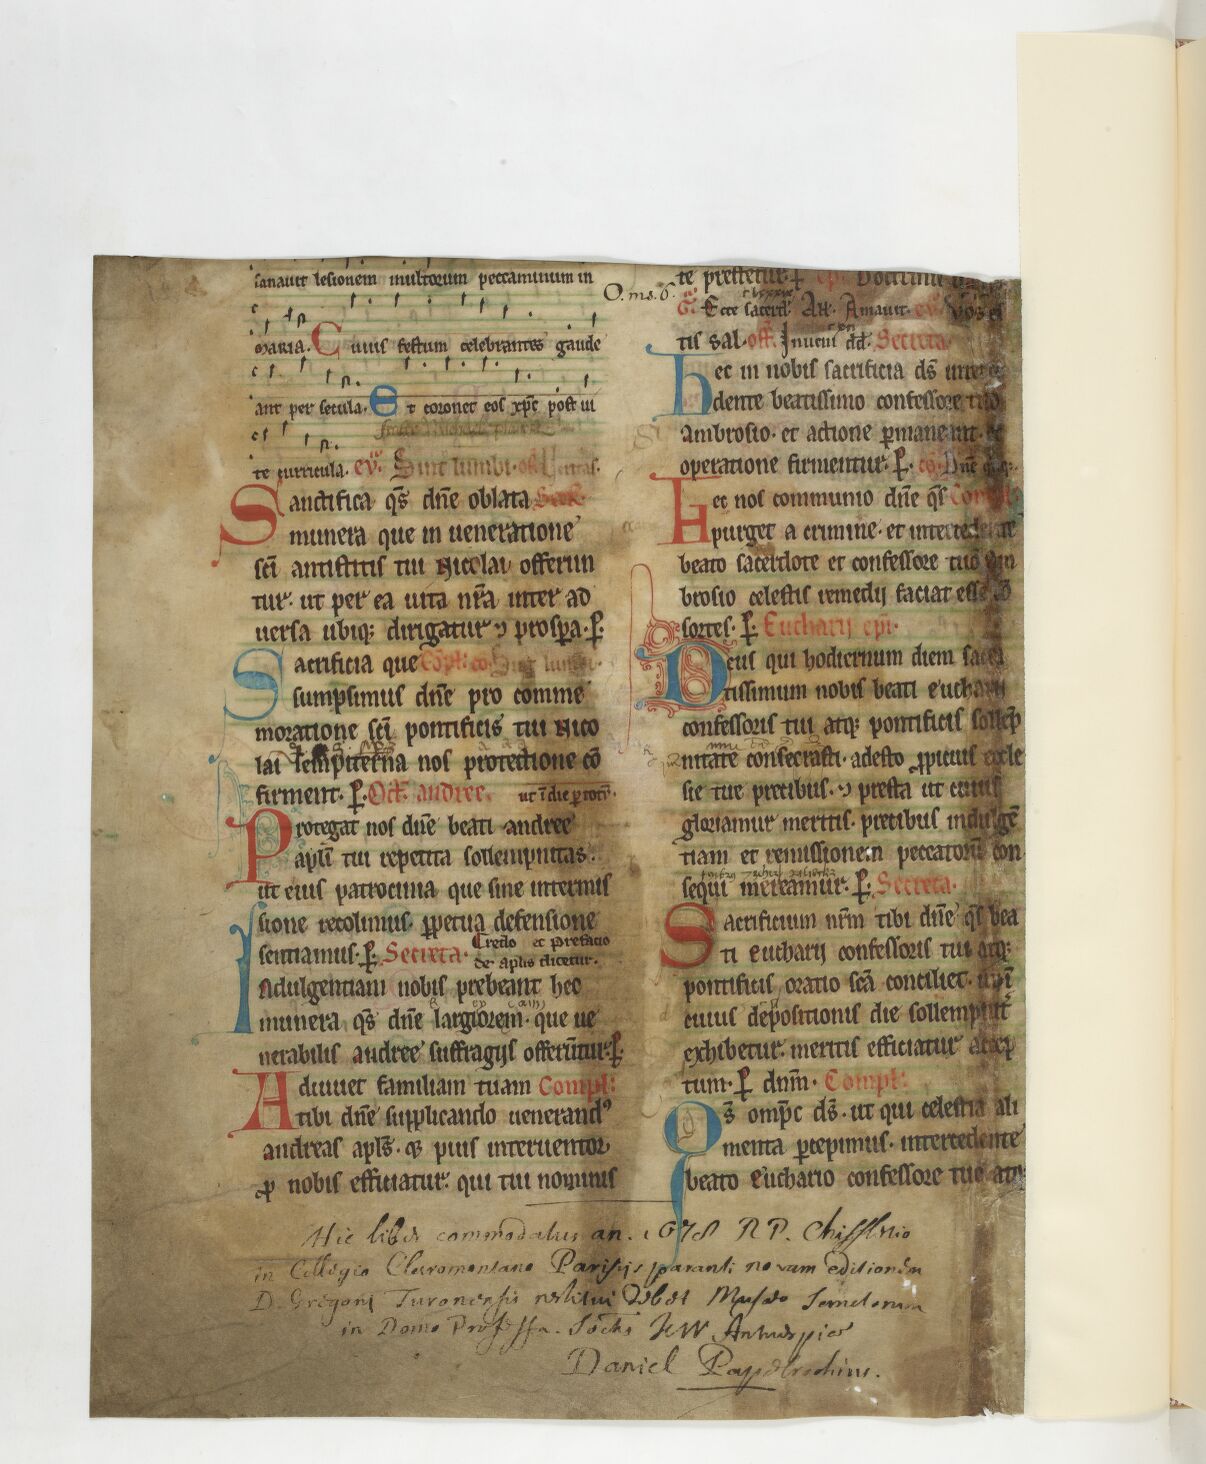 sanauit lesionem multorum peccaminum in
MARIA. Cuius festum celebrantes gaude
ant per secula. Et coronet eos xp̄c post ui
te curricula. eṽ. Sint lumbi. of. Veritas.
Sanctifica q̄s dn̄e oblata Secr̄.
munera que in ueneratione
sc̄i antistitis tui Nicolai offerun
tur. ut per ea uita nr̄a inter ad
uersa ubiq; dirigatur ⁊ prospa. P̱.
Sacrificia que Cōpl. co. Sint lumbi.
sumpsimus dn̄e pro comme
moratione sc̄i pontificis tui Nico
lai sempiterna nos protectione cō
firment. P̱. Oct̄. andree. ut ī die p̱ totū.
Protegat nos dn̄e beati andree
apl̄i tui repetita sollempnitas.
ut eius patrocinia que sine intermis
sione recolimus. ꝑpetua defensione
sentiamus. P̱. Secreta. Credo et Prefacio
de aplis dicetur.
Indulgentiam nobis prebeant hec
munera q̄s dn̄e largiorem. que ue
nerabilis andree suffragijs offerūtur. P̱.
Adiuuet familiam tuam Compl̄.
tibi dn̄e supplicando uenerandꝰ
andreas apl̄s. ⁊ pius interuentor
ꝓ nobis efficiatur. qui tui nominis
O. ms. 6.
te prestetur. P̱. ep̄i.
Ecce sacerd̄. All̄. Amauit. eṽ. Vos es
tis sal. off̄. Inueni dd̄. Secreta.
Hec in nobis sacrificia ds̄
dente beatissimo confessore tuo
ambrosio. et actione ꝑmaneant. et
operatione firmentur. P̱. cō. Dn̄e
Hec nos communio dn̄e q̄s Compl̄.
purget a crimine. et intercedente
beato sacerdote et confessore tuo am
brosio celestis remedij faciat esse cō
sortes. P̱. Eucharij ep̄i.
Deus qui hodiernum diem sacra
tissimum nobis beati eucharij
confessoris tui atq; pontificis sollēp
nitate consecrasti. adesto ꝓpicius eccle
sie tue precibus. ⁊ presta ut cuius
gloriamur meritis. precibus indulgē
tiam et remissionem peccatorū con
sequi mereamur. P̱. Secreta.
Sacrificium nr̄m tibi dn̄e q̄s bea
ti eucharij confessoris tui atq;
pontificis oratio sc̄a conciliet. ut in
cuius depositionis die sollempnit̄
exhibetur. meritis efficiatur accep
tum. P̱ dnm̄. Compl̄.
Q̄s omp̄c ds̄. ut qui celestia ali
menta ꝑcepimus. intercedente
beato Euchario confessore tuo atq;
Hic liber commodatus an. 1678 R P. Chiffletio
in Collegio Claromontano Parisijs paranti novam editionem
D. Gregorij Turonensis restitui debet Musæo Sanctorum
in Domo Professa. Soctis Iesu Antuerpiæ
Daniel Papebrochius.